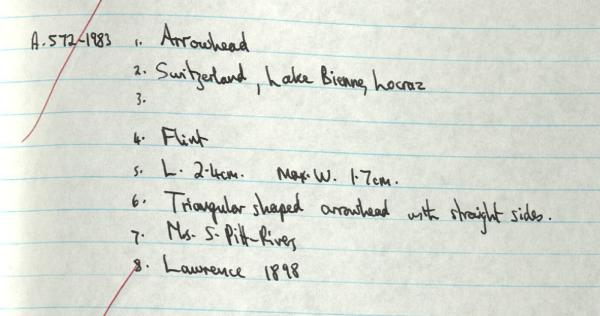 A.572-1983 1. Arrowhead
2. Switzerland, Lake Bienne, Locraz
3.
4. Flint
5. L. 2.4cm. Max. W. 1.7cm.
6. Triangular shaped arrowhead with straight sides.
7. Ms. S. Pitt-Rivers
8. Lawrence 1898